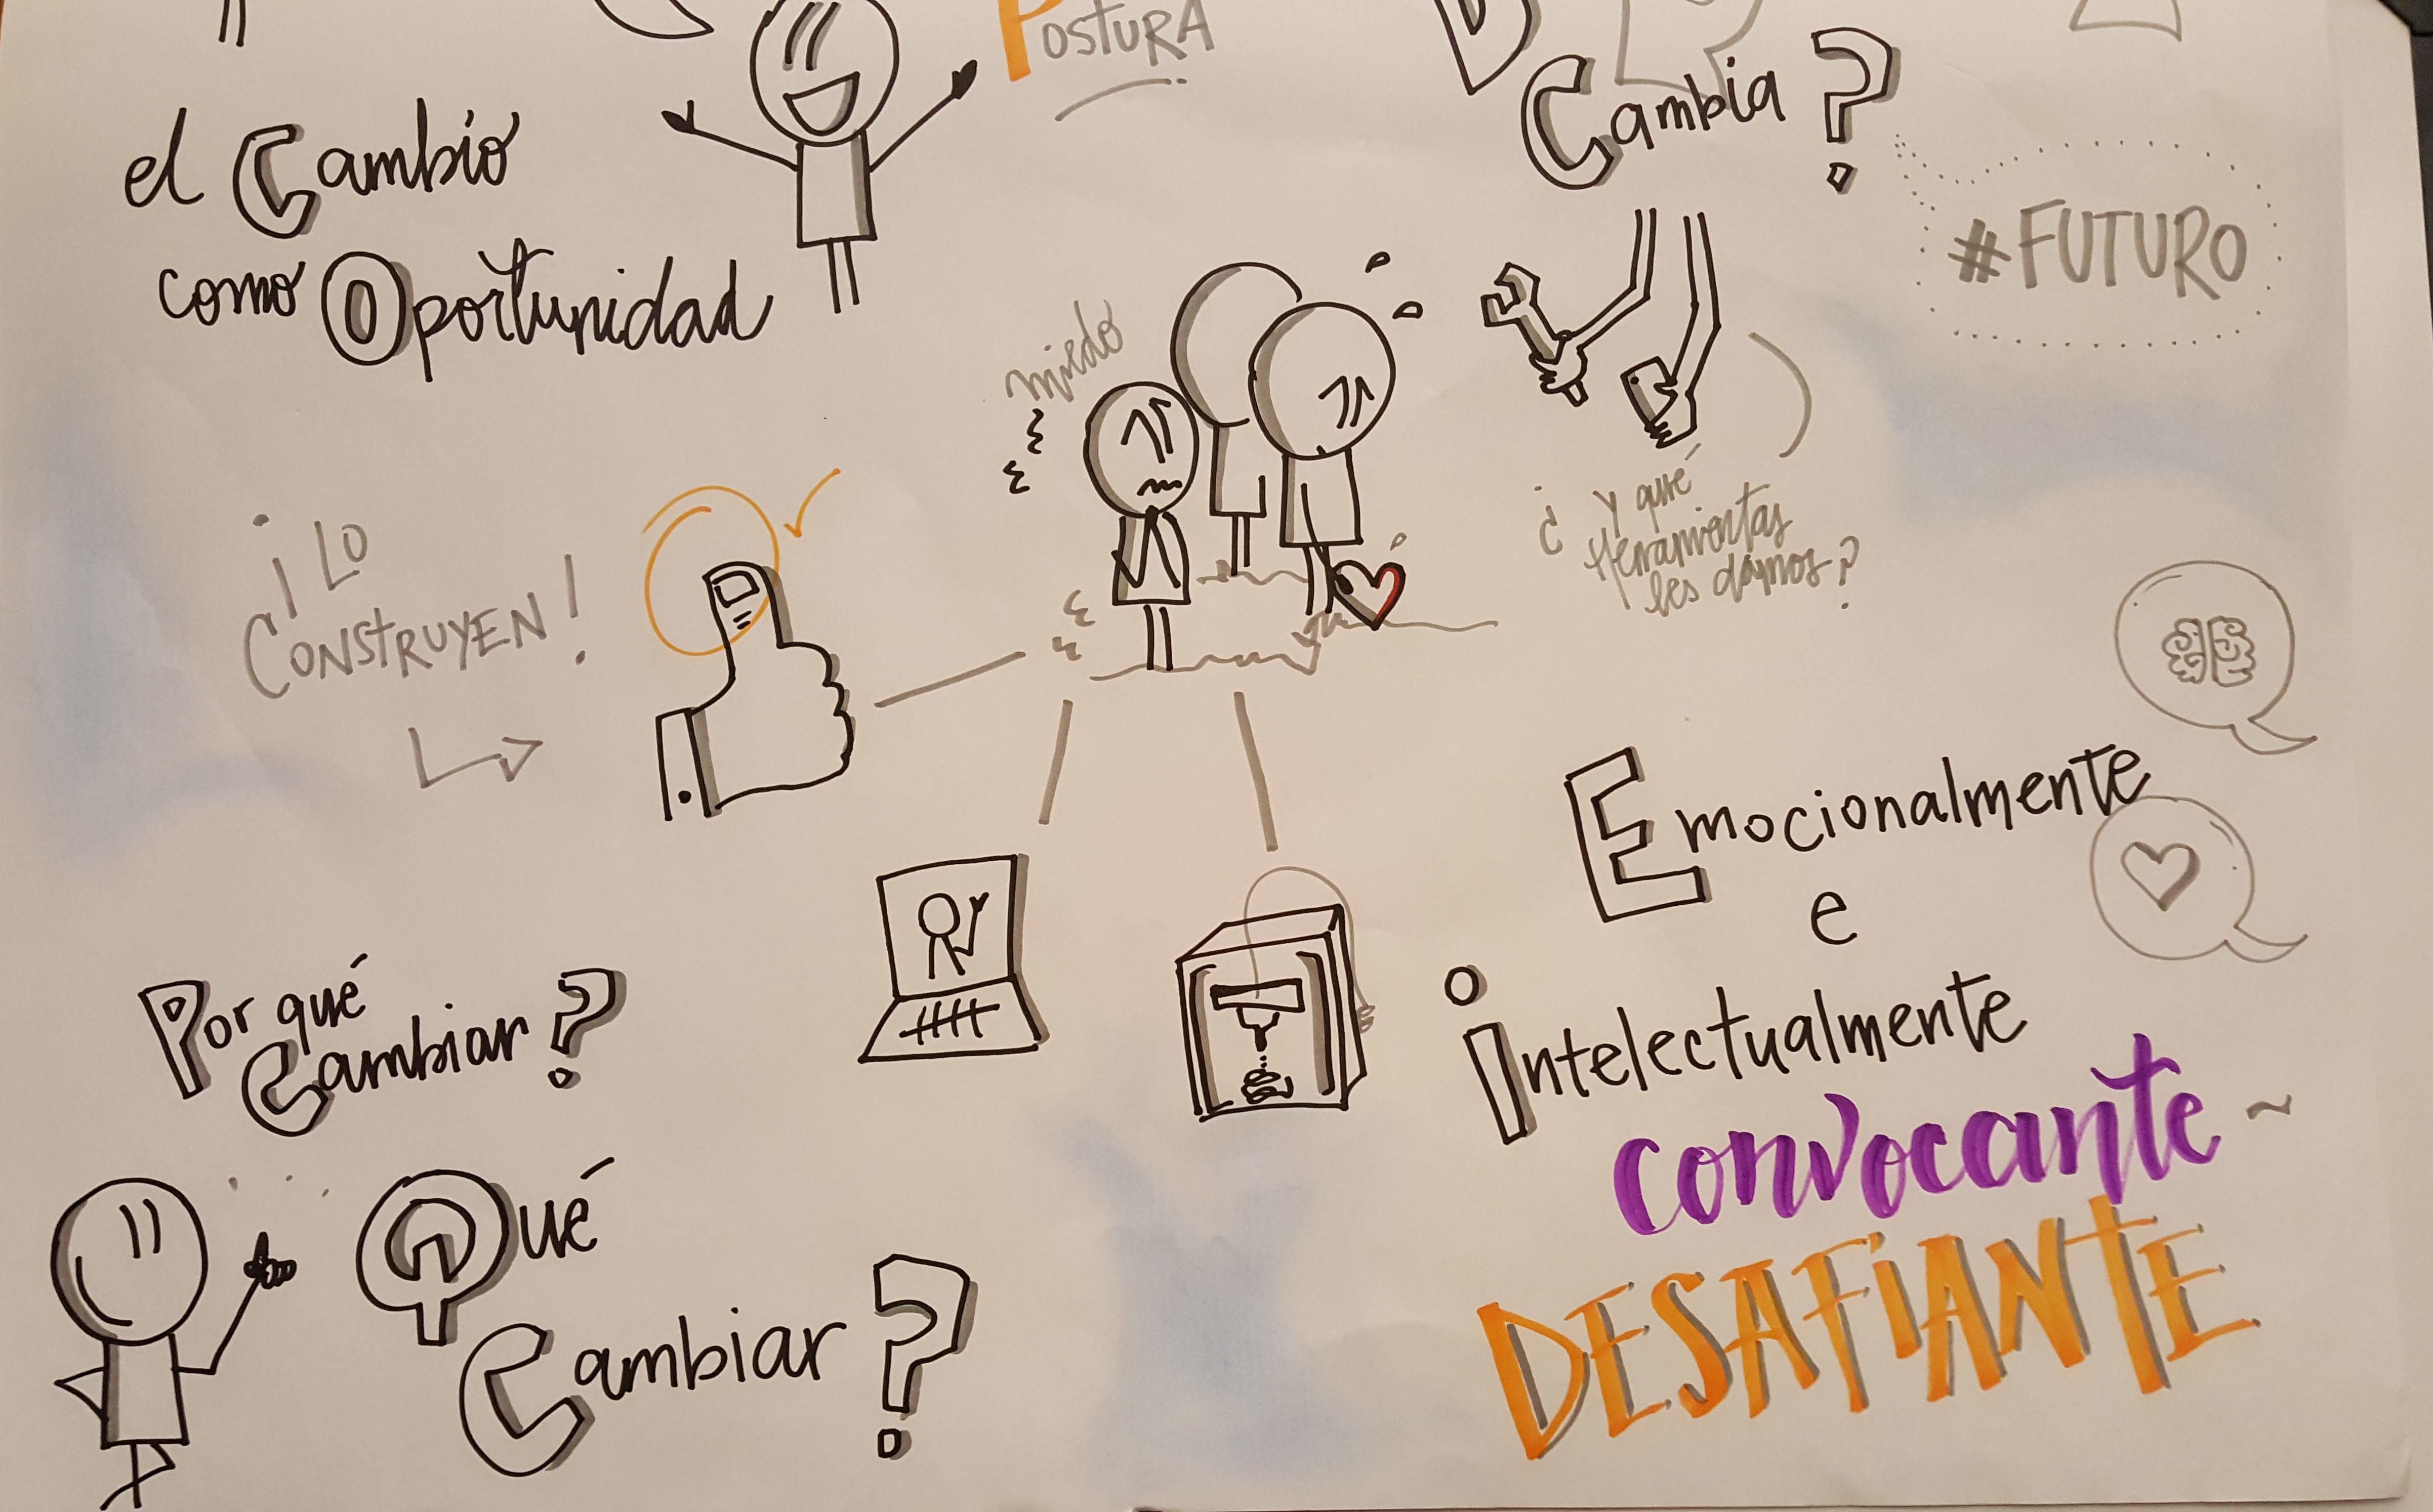 Postura
el Cambio
como Oportunidad
Cambia?
#FUTURO
miedo
¿Y qué
Herramientas
les damos?
¡Lo
Construyen!
Emocionalmente
e
intelectualmente
convocante ~
DESAFiANTE
Por qué
Cambiar?
Qué
Cambiar?